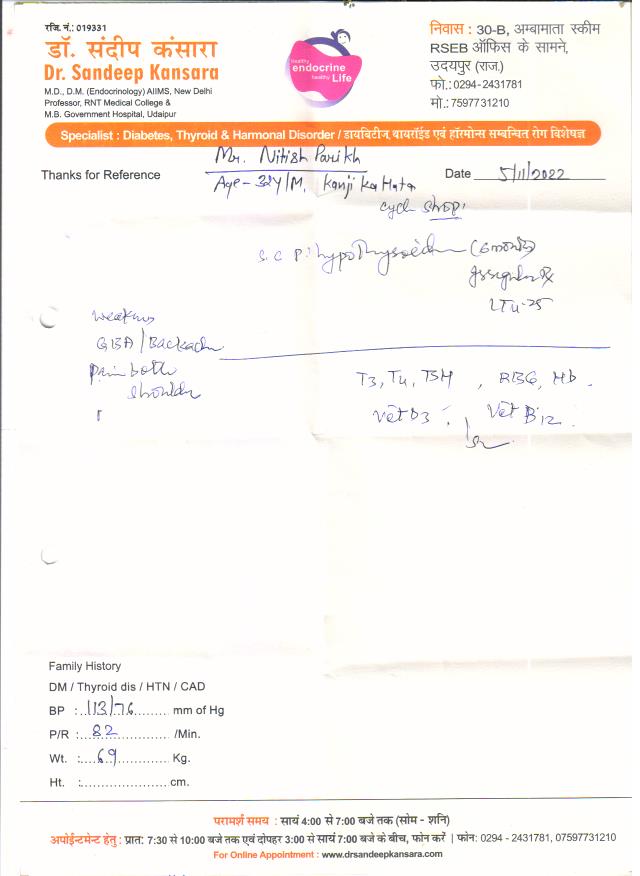 रजि. नं.: 019331
डॉ. संदीप कंसारा
Dr. Sandeep Kansara
M.D., D.M. (Endocrinology) AIIMS, New Delhi
Professor, RNT Medical College &
M.B. Government Hospital, Udaipur
Healthy
endocrine
healthy Life
निवास : 30-B, अम्बामाता स्कीम
RSEB ऑफिस के सामने,
उदयपुर (राज.)
फो.: 0294-2431781
मो.: 7597731210
Specialist : Diabetes, Thyroid & Harmonal Disorder / डायबिटीज, थायरॉईड एवं हॉरमोन्स सम्बन्धित रोग विशेषज्ञ
Mr. Nitish Parikh
Thanks for Reference
Date 5/11/2022
Age - 32Y/M, Kanji Ka Hata
Cycle shop
Hypothyroidism (6 months)
Irregular Rx
LT4-25
Weakness
GBA / Backache
Pain both
shoulder
T3, T4, TSH , RBG, Hb .
Vit D3 , Vit B12
Family History
DM / Thyroid dis / HTN / CAD
BP : 113/76 mm of Hg
P/R : 82 /Min.
Wt. : 69 Kg.
Ht. : cm.
परामर्श समय : सायं 4:00 से 7:00 बजे तक (सोम - शनि)
अपोईन्टमेन्ट हेतु : प्रात: 7:30 से 10:00 बजे तक एवं दोपहर 3:00 से सायं 7:00 बजे के बीच, फोन करें | फोन: 0294 - 2431781, 07597731210
For Online Appointment : www.drsandeepkansara.com